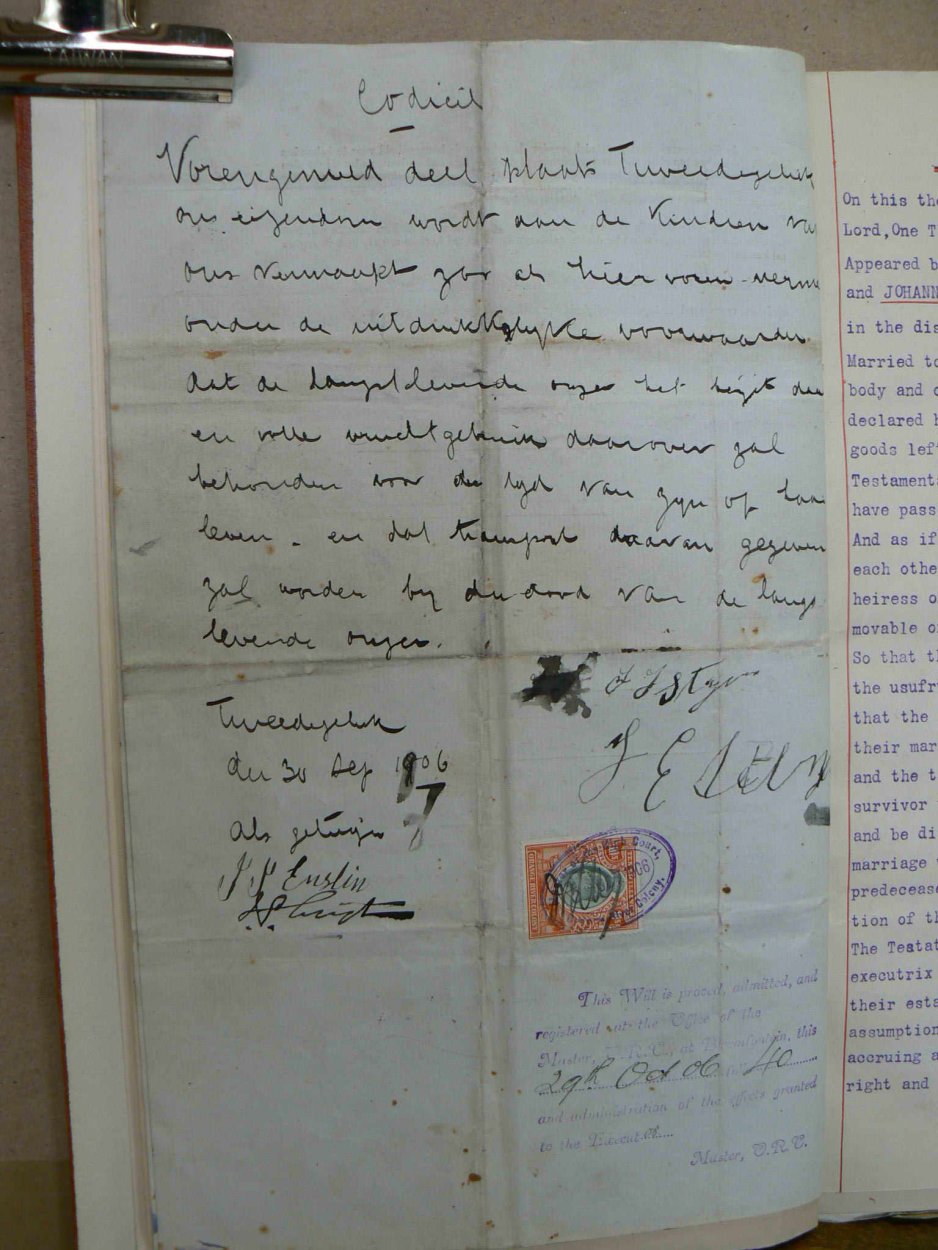 TAIWAN
Codicil
Vorengemeld deel plaats Tweedegeluk
ons eigendom wordt aan de Kinderen va
ons vermaakt zoo als hier voren verm
onder de uitdrukkelyke voorwaarden
dat de langstlevende onzer het
en volle vruchtgebruik daarover zal
behouden voor den tyd van zyn of haar
leven - en dat transport daarvan gegeven
zal worden by den dood van de langs
levende onzer.
Tweedegeluk
den 30 Sep 1906
Als getuigen
Enslin
Court,
1906
Colony.
This Will is proved, admitted, and
registered at the Office of the
Master, O.R.C., at Bloemfontein, this
29th Oct 06
and administration of the effects granted
to the Execut
Master, O.R.C.
On this the
Lord, One T
Appeared b
and JOHANN
in the dis
Married to
body and o
declared h
goods lef
Testament
have pass
And as if
each othe
heiress o
movable o
So that th
the usufr
that the
their mar
and the t
survivor
and be di
marriage
predecease
tion of th
The Testat
executrix
their esta
assumption
accruing a
right and